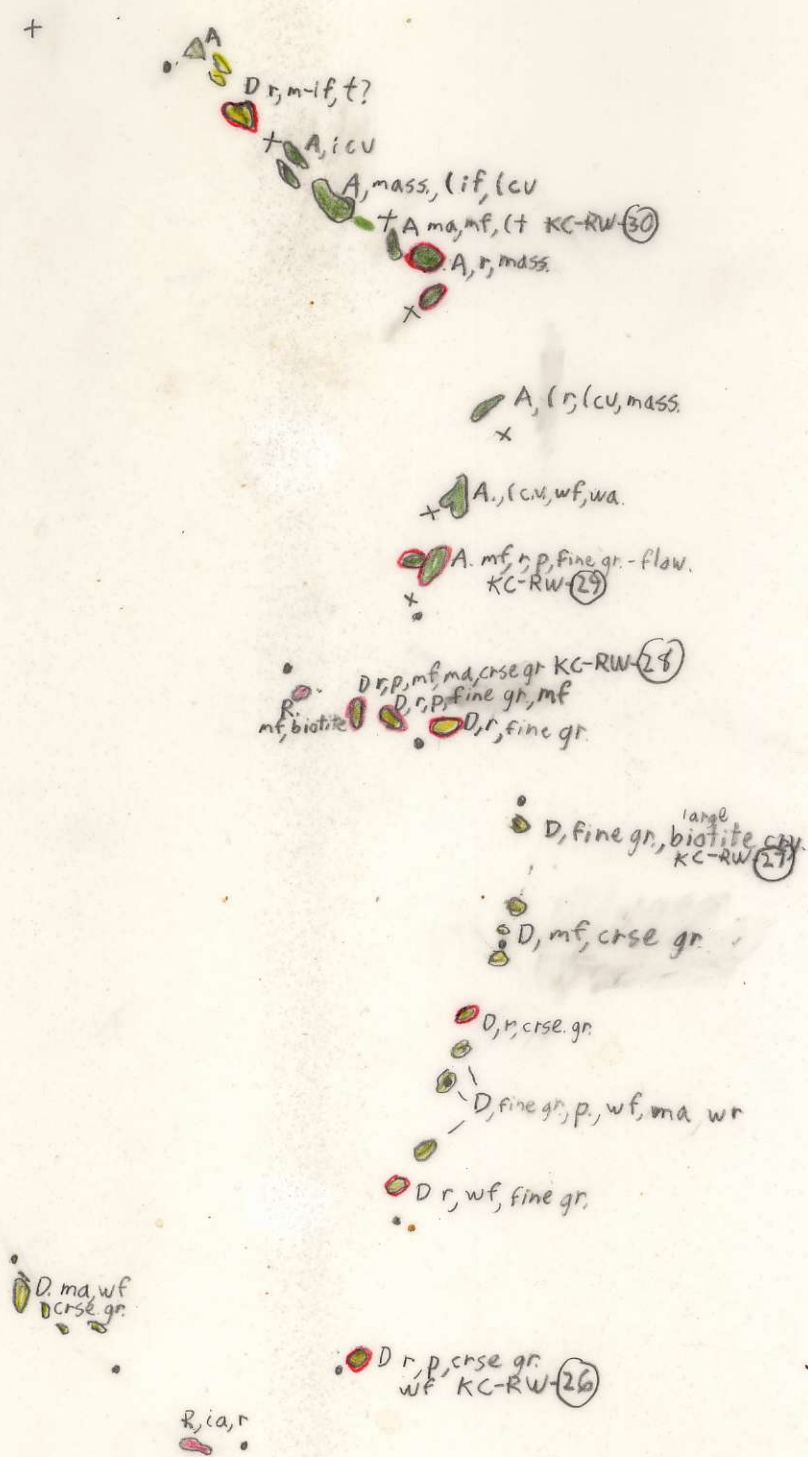 A
D r, m-if, t?
A, i cv
A, mass., (if, (cv
A ma, mf, (t KC-RW-30
A, r, mass.
A, (r, (cv, mass.
A., (cv, wf, wa.
A. mf, r, p, fine gr. - flow.
KC-RW-29
D r, p, mf, ma, crse gr KC-RW-28
D, r, p, fine gr, mf
R.
mf, biotite
D, r, fine gr.
large
D, fine gr., biotite cry.
KC-RW-27
D, mf, crse gr.
D, r, crse. gr.
D, fine gr., p., wf, ma wr
D r, wf, fine gr.
D. ma, wf
crse. gr.
D r, p, crse gr.
wf KC-RW-26
R, ia, r